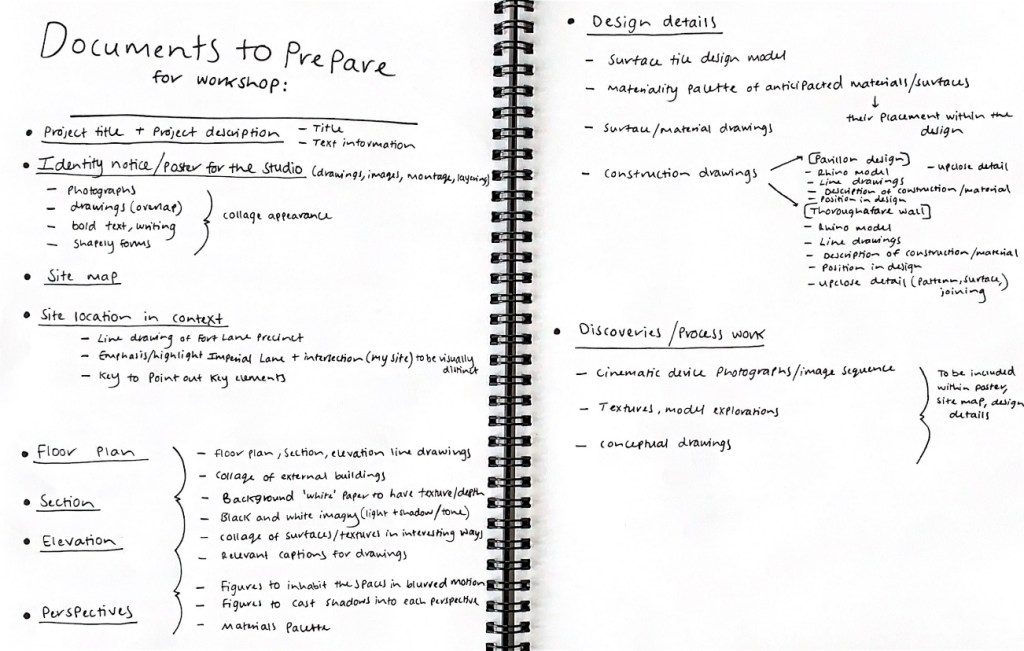 Documents to Prepare
for workshop:
• Project title + Project description – Title
– Text information
• Identity notice/Poster for the studio (drawings, images, montage, layering)
– Photographs
– drawings (overlap)
– bold text, writing
– Shapely forms
collage appearance
• Site map
• Site location in context
– Line drawing of Fort Lane Precinct
– Emphasis/highlight Imperial Lane + intersection (my site) to be visually
distinct
– Key to Point out Key elements
• Floor Plan
• Section
• Elevation
• Perspectives
– Floor plan, section, elevation line drawings
– Collage of external buildings
– Background 'white' Paper to have texture/depth
– Black and white imagry (light + shadow/tone)
– collage of surfaces/textures in interesting ways
– Relevant captions for drawings
– Figures to inhabit the spaces in blurred motion
– Figures to cast shadows into each perspective
– Materials Palette
• Design details
– Surface tile design model
– Materiality palette of anticipacted materials/surfaces
↓
their Placement within the
design
– Surface/material drawings
– Construction drawings
[Pavilion design]
– Rhino model
– upclose detail
– Line drawings
– Description of construction/material
– Position in design
[Thoroughafare wall]
– Rhino model
– Line drawings
– Description of construction/material
– Position in design
– upclose detail (Pattern, surface,)
joining
• Discoveries/Process work
– Cinematic device Photographs/image sequence
– Textures, model explorations
– conceptual drawings
To be included
within poster,
site map, design
details